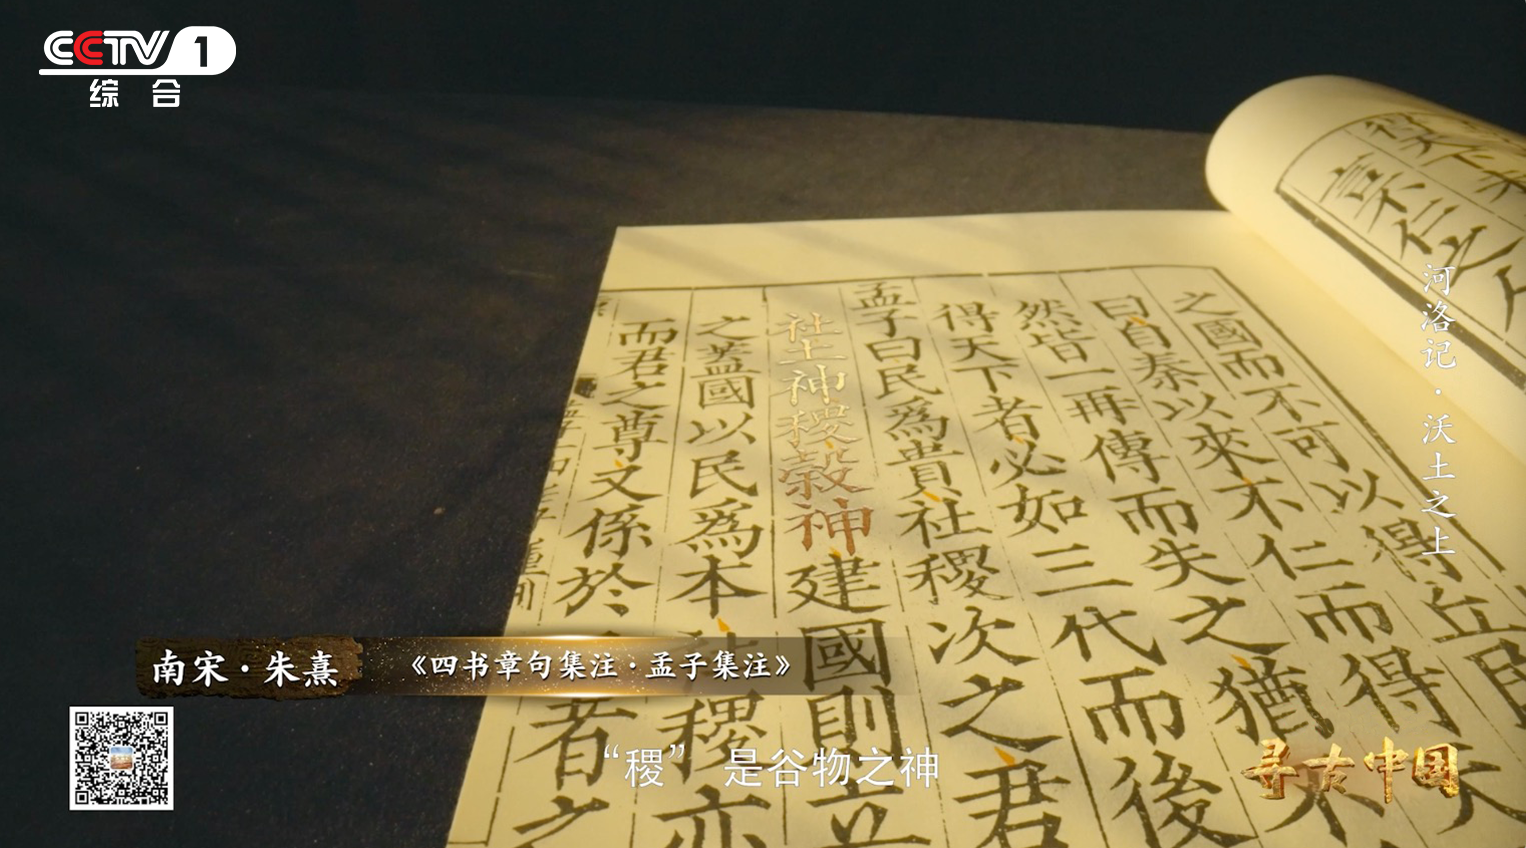 CCTV 1
综合
得天下者
河洛记·沃土之上
之國而不可以得丘
曰自秦以來不仁而得天
然皆一再傳而失之猶
得天下者必如三代而後
孟子曰民爲貴社稷次之君
社土神稷穀神建國則立
之蓋國以民爲本社稷亦
而君之尊又係於
者之
南宋·朱熹
《四书章句集注·孟子集注》
“稷” 是谷物之神
寻古中国